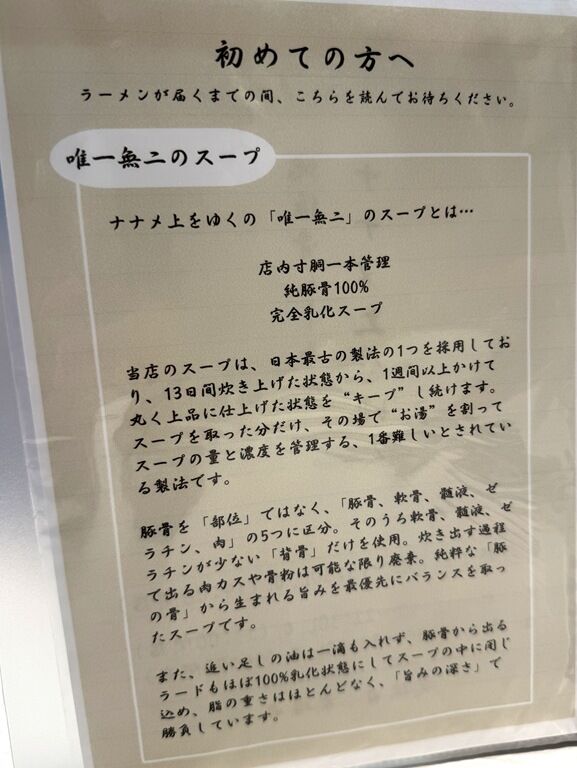 初めての方へ
ラーメンが届くまでの間、こちらを読んでお待ちください。
唯一無二のスープ
ナナメ上をゆくの「唯一無二」のスープとは…
店内寸胴一本管理
純豚骨100%
完全乳化スープ
当店のスープは、日本最古の製法の1つを採用してお
り、13日間炊き上げた状態から、1週間以上かけて
丸く上品に仕上げた状態を“キープ”し続けます。
スープを取った分だけ、その場で“お湯”を割って
スープの量と濃度を管理する、1番難しいとされてい
る製法です。
豚骨を「部位」ではなく、「豚骨、軟骨、髄液、ゼ
ラチン、肉」の5つに区分。そのうち軟骨、髄液、ゼ
ラチンが少ない「背骨」だけを使用。炊き出す過程
で出る肉カスや骨粉は可能な限り廃棄。純粋な「豚
の骨」から生まれる旨みを最優先にバランスを取っ
たスープです。
また、近い足しの油は一滴も入れず、豚骨から出る
ラードもほぼ100%乳化状態にしてスープの中に閉じ
込め、脂の重さはほとんどなく、「旨みの深さ」で
勝負しています。